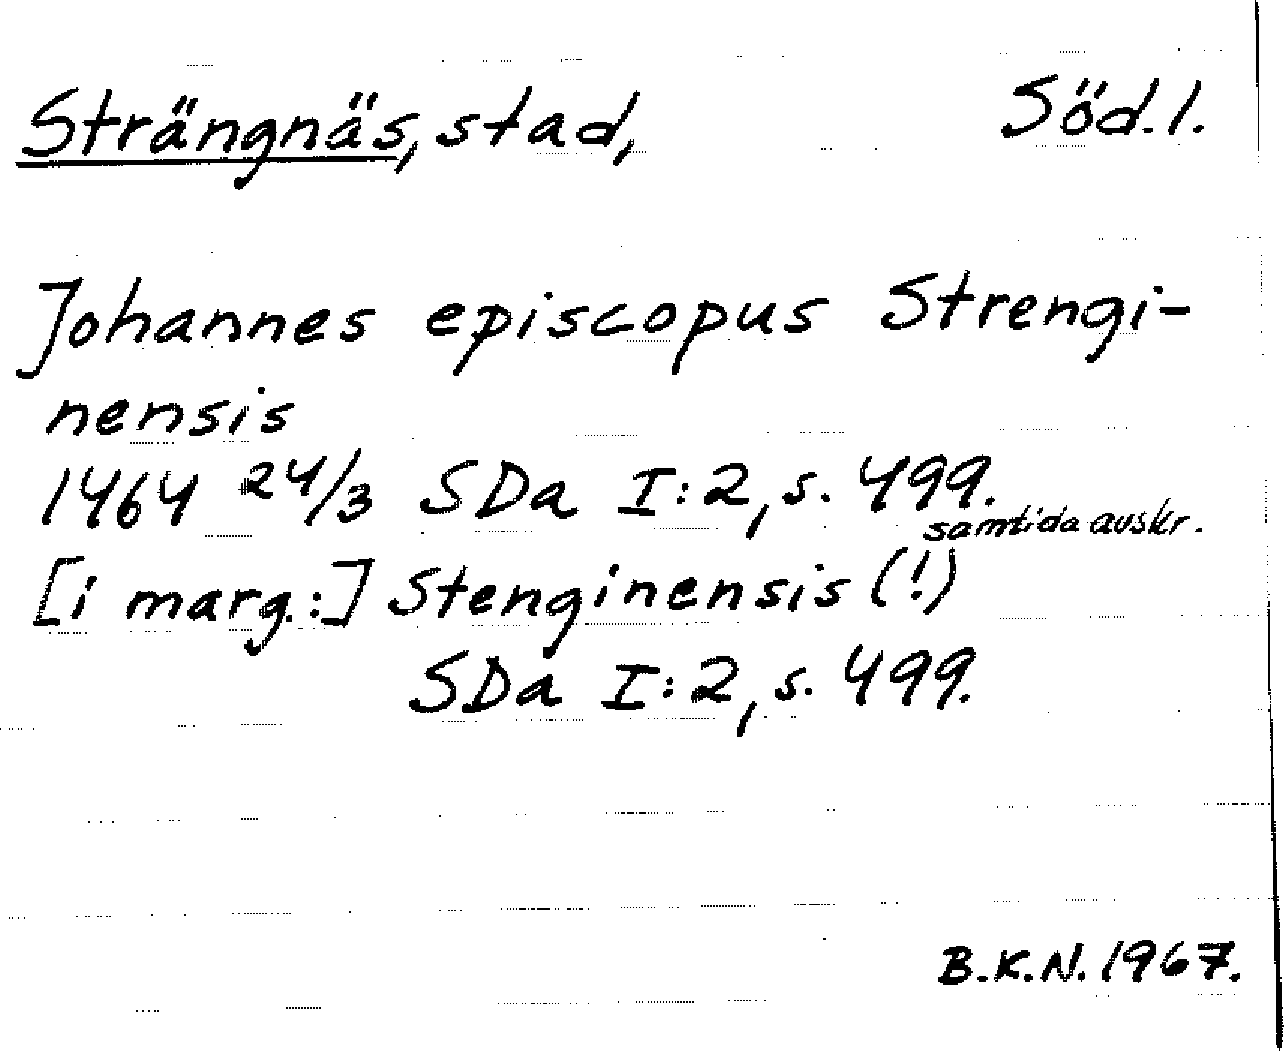 Strängnäs, stad, Söd.l.
Johannes episcopus Strengi-
nensis
1464 24/3 SDa I:2, s. 499.
samtida avskr.
[i marg.:] Stenginensis (!)
SDa I:2, s. 499.
B.K.N. 1967.